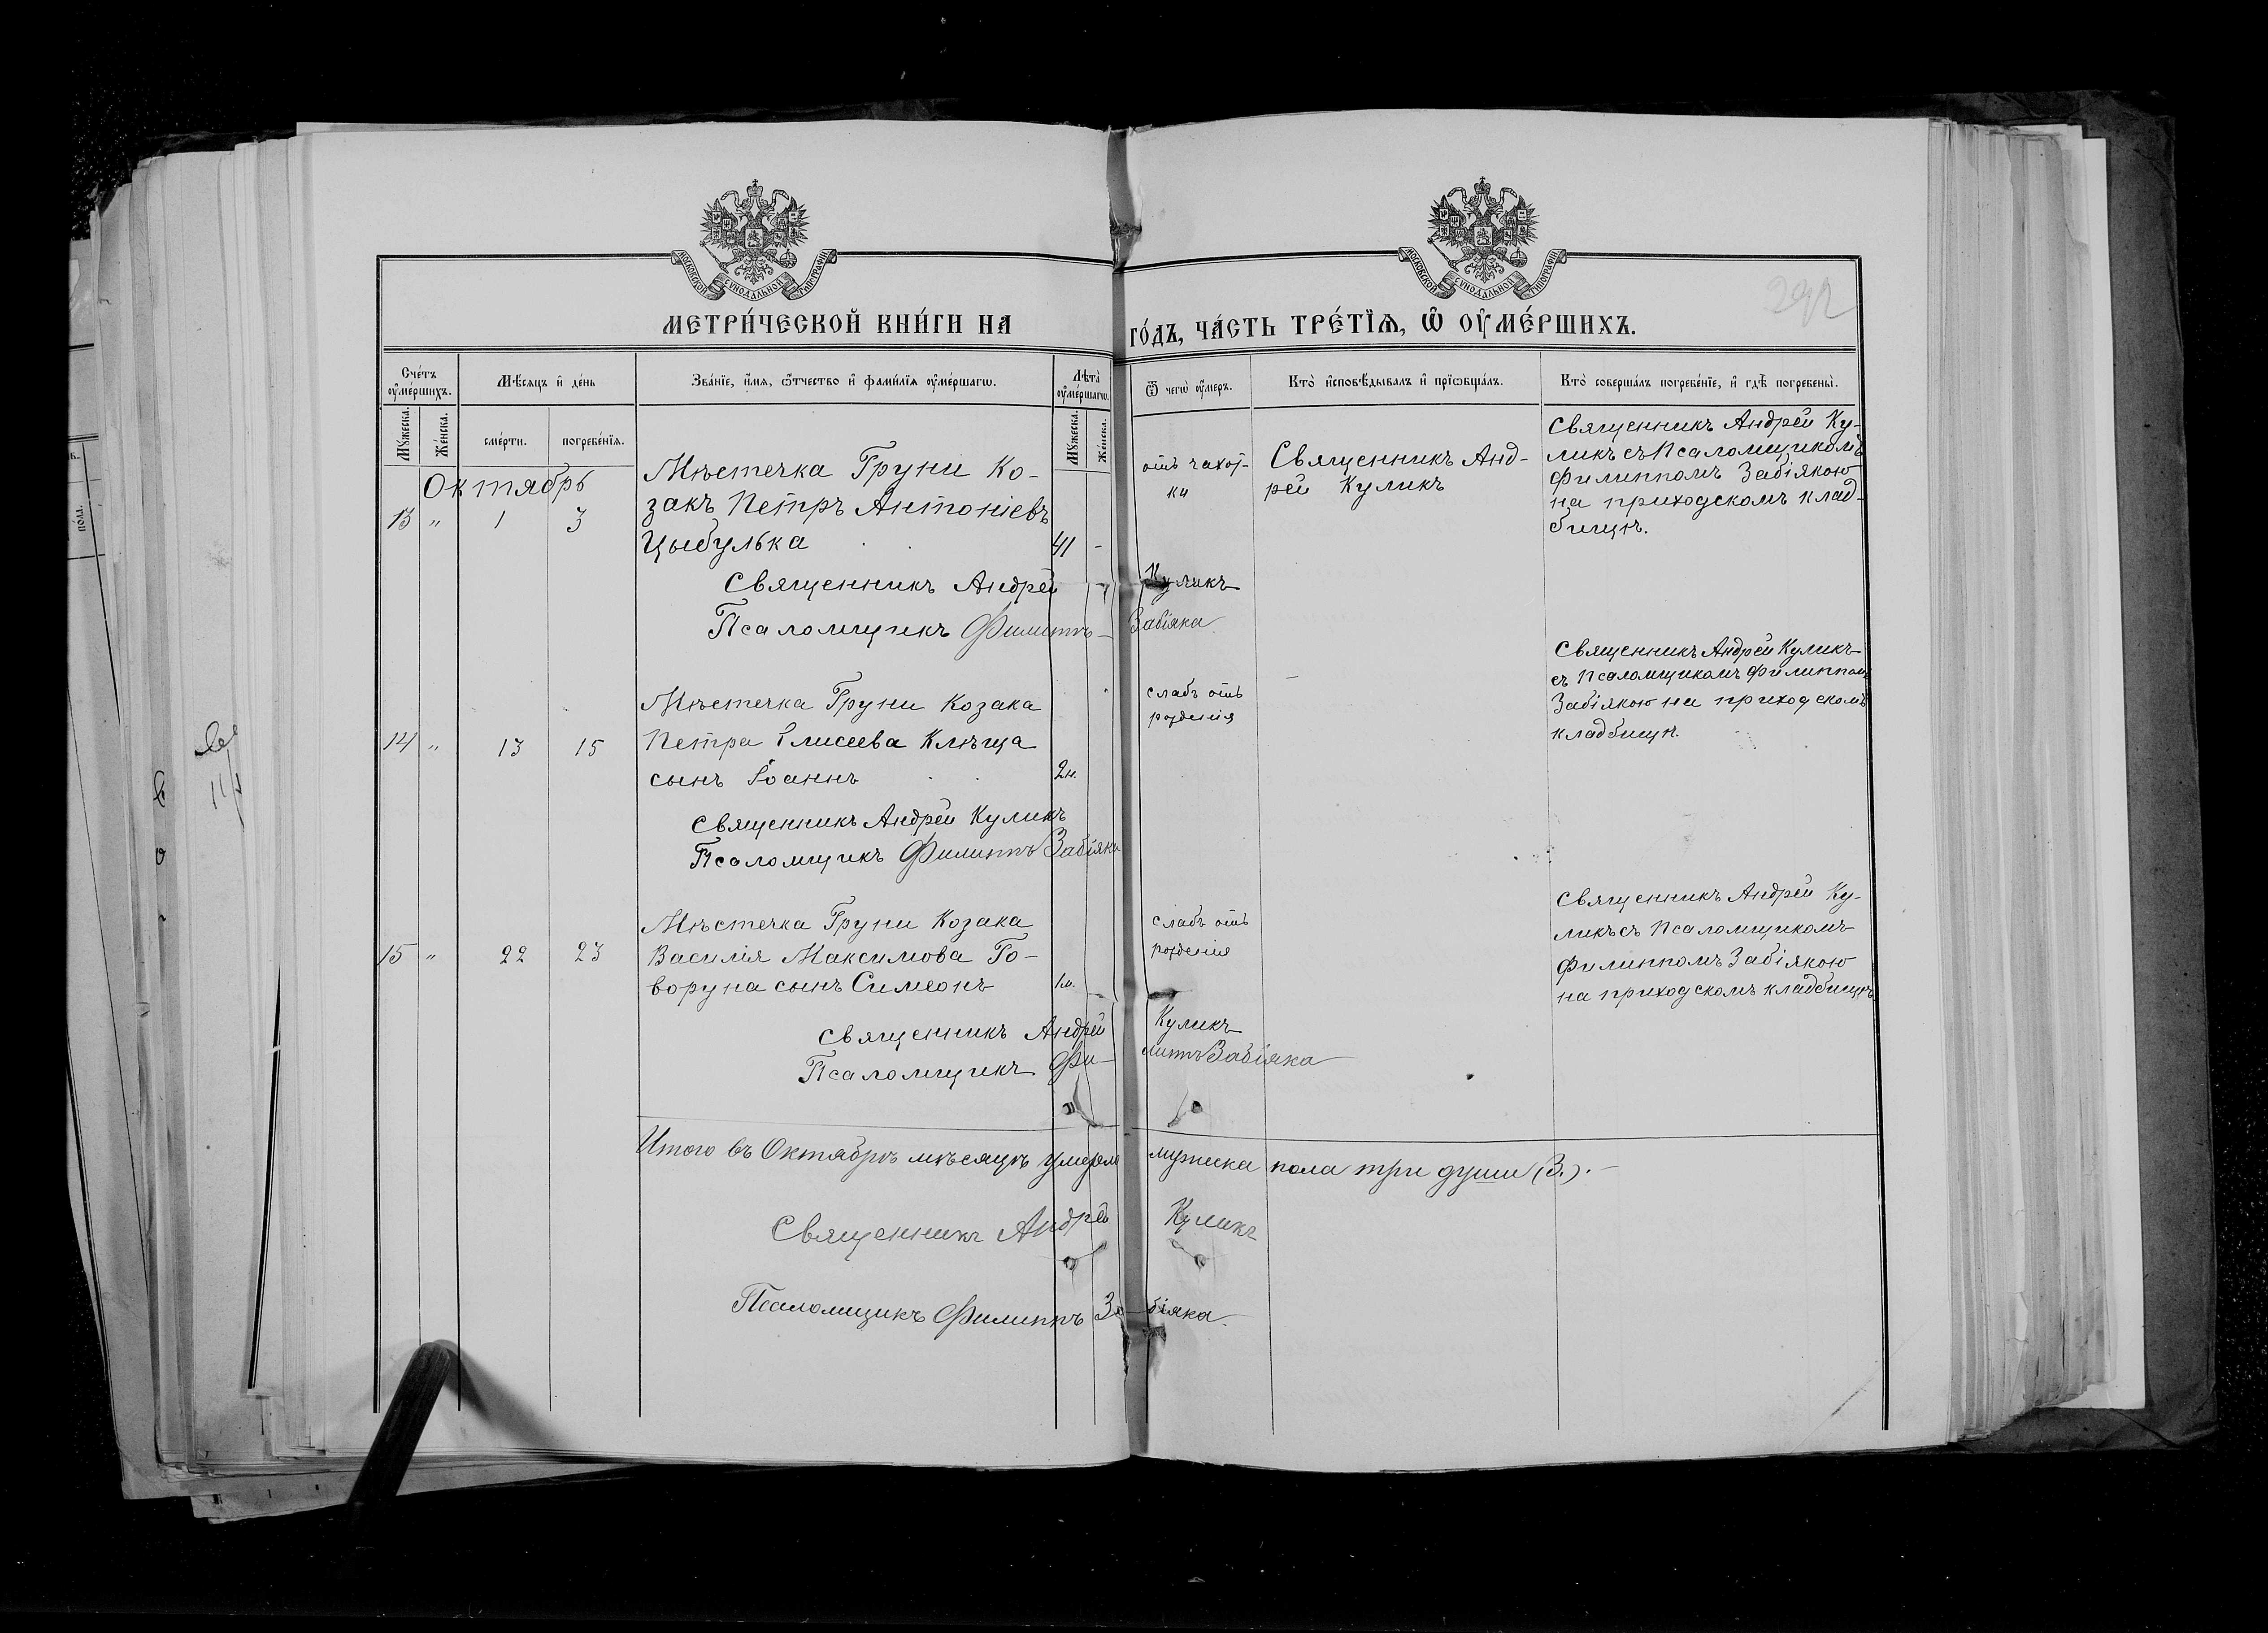 МОСКОВСКОЙ СѴНОДАЛЬНОЙ ТИПОГРАФІИ
МОСКОВСКОЙ СѴНОДАЛЬНОЙ ТИПОГРАФІИ
292
МЕТРИ́ЧЕСКОЙ КНИ́ГИ НА
ГО́ДЪ, ЧА́СТЬ ТРЕ́ТЇѦ, Ѡ҆ ОУ҆МЕ́РШИХЪ.
Сче́тъ оу҆ме́ршихъ.
Мѣ́сяцъ и҆ де́нь
Зва́нїе, и҆́мя, ѻ҆́тчество и҆ фами́лїя оу҆ме́ршагѡ.
Лѣ́та оу҆ме́ршагѡ.
Ѿ чегѡ̀ оу҆́меръ.
Кто̀ и҆сповѣ́дывалъ и҆ прїѡбща́лъ.
Кто̀ соверша́лъ погребе́нїе, и҆ гдѣ̀ погребены̀.
Мꙋ́жеска.
Же́нска.
сме́рти.
погребе́нїя.
Мꙋ́жеска.
Же́нска.
Октябрь
13 " 1 3
Мѣстечка Груни Ко-
закъ Петръ Антоніевъ
Цыбулька 41 -
отъ чахот-
ки
Священникъ Анд-
рей Куликъ
Священникъ Андрей Ку-
ликъ съ Псаломщикомъ
Филиппомъ Забіякою
на приходскомъ клад-
бищѣ.
Священникъ Андрей Куликъ
Псаломщикъ Филиппъ Забіяка
14 " 13 15
Мѣстечка Груни Козака
Петра Елисеева Клѣща
сынъ Іоаннъ 2н.
слабъ отъ
рожденія
-
Священникъ Андрей Куликъ
съ Псаломщикомъ Филиппомъ
Забіякою на приходскомъ
кладбищѣ.
Священникъ Андрей Куликъ
Псаломщикъ Филиппъ Забіяка
15 " 22 23
Мѣстечка Груни Козака
Василія Максимова Го-
воруна сынъ Симеонъ 1м.
слабъ отъ
рожденія
Священникъ Андрей Ку-
ликъ съ Псаломщикомъ
Филиппомъ Забіякою
на приходскомъ кладбищѣ
Священникъ Андрей Куликъ
Псаломщикъ Филиппъ Забіяка
Итого въ Октябрѣ мѣсяцѣ умерло мужеска пола три души (3.).
Священникъ Андрей Куликъ
Псаломщикъ Филиппъ Забіяка.